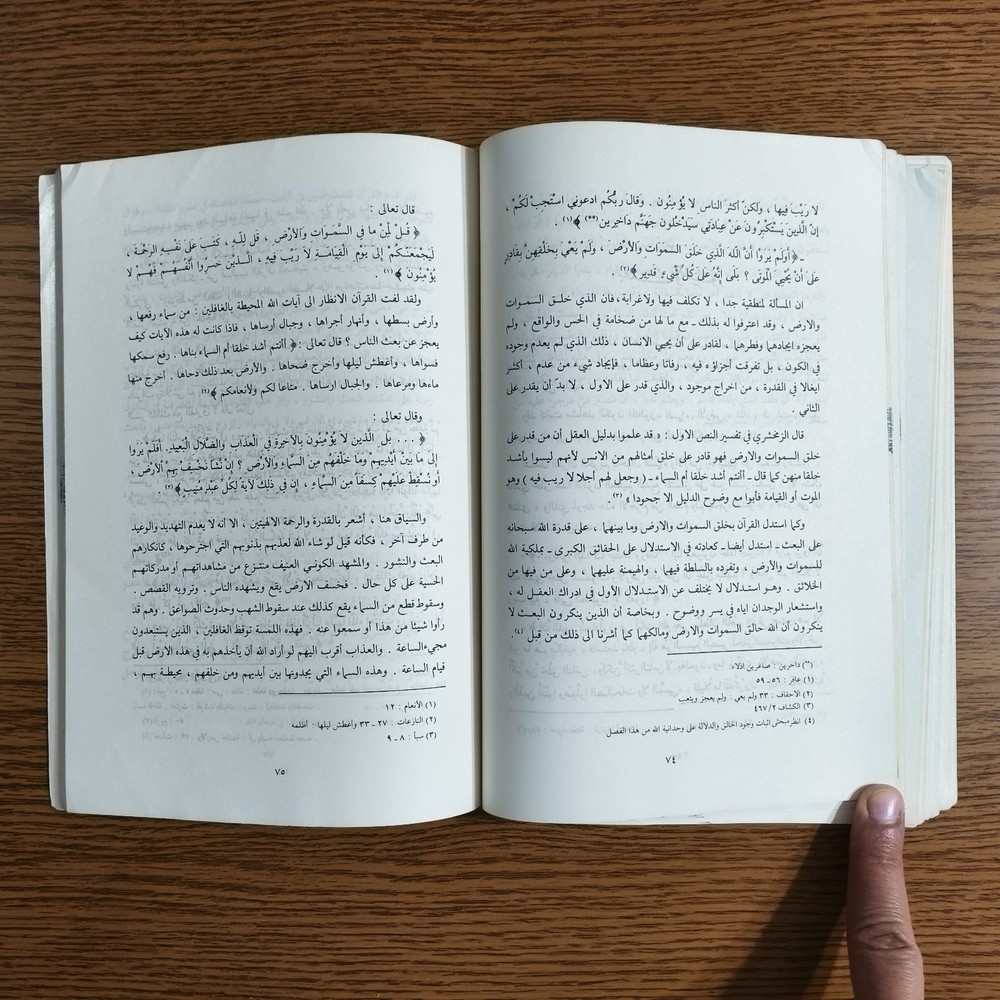 لا رَيْبَ فيها ، ولكنّ أكثرَ الناسِ لا يُؤمِنُون . وقالَ رَبُّكُم ادعوني استَجِبْ لَكُمْ ،
إنّ الَّذينَ يَسْتَكْبِرُونَ عَنْ عِبادَتي سَيَدْخُلون جَهَنَّم دَاخِرين (**) ﴾(١) .
ـ ﴿ أولَم يَرَوا أنَّ اللّهَ الَّذي خَلَقَ السَمواتِ والأرْضَ ، ولَمْ يَعْيَ بِخَلْقِهِنَّ بِقَادِرٍ
عَلى أنْ يُحْيِيَ المَوتى ؟ بَلَى إنّهُ عَلى كُلِّ شَيءٍ قَدير ﴾(٢) .
ان المسألة لمنطقية جدا ، لا تكلف فيها ولا غرابة ، فان الذي خلق السموات
والارض ، وقد اعترفوا له بذلك ـ مع ما لها من ضخامة في الحس والواقع ، ولم
يعجزه ايجادهما وفطرهما ، لقادر على أن يحيي الانسان ، ذلك الذي لم يعدم وجوده
في الكون ، بل تفرقت أجزاؤه فيه ، رفاتا وعظاما ، فإيجاد شيء من عدم ، أكثر
ايغالا في القدرة ، من اخراج موجود ، والذي قدر على الاول ، لا بدّ أن يقدر على
الثاني .
قال الزمخشري في تفسير النص الاول : « قد علموا بدليل العقل أن من قدر على
خلق السموات والارض فهو قادر على خلق أمثالهم من الانس لأنهم ليسوا بأشد
خلقا منهن كما قال ـ أأنتم أشد خلقا أم السماء ـ ( وجعل لهم أجلا لا ريب فيه ) وهو
الموت أو القيامة فأبوا مع وضوح الدليل الا جحودا » (٣) .
وكما استدل القرآن بخلق السموات والارض وما بينهما ، على قدرة الله سبحانه
على البعث ـ استدل أيضا ـ كعادته في الاستدلال على الحقائق الكبرى ـ بملكية الله
للسموات والأرض ، وتفرده بالسلطة فيهما ، والهيمنة عليهما ، وعلى من فيها من
الخلائق . وهو استدلال لا يختلف عن الاستدلال الأول في ادراك العقل له ،
واستشعار الوجدان اياه في يسر ووضوح . وبخاصة أن الذين ينكرون البعث لا
ينكرون أن الله خالق السموات والارض ومالكهما كما أشرنا الى ذلك من قبل (٤) .
(**) داخرين : صاغرين اذلاء
(١) غافر : ٥٦ ـ ٥٩
(٢) الاحقاف : ٣٣ ولم يعي : ولم يعجز ويتعب
(٣) الكشاف ٢ / ٤٦٧
(٤) انظر مبحث اثبات وجود الخالق والدلالة على وحدانية الله من هذا الفصل
٧٤
قال تعالى :
﴿ قُلْ لِمَنْ ما في السَّمَواتِ والأَرْضِ ، قُل لِلّهِ ، كَتَبَ عَلَى نَفْسِهِ الرحْمَة ،
لَيَجْمَعَنَّكُمْ إلى يَوْمِ القِيامَةِ لا رَيبَ فيه ، الَّذينَ خَسِروا أنْفُسَهُمْ فَهُمْ لا
يُؤْمِنُون ﴾ (١) .
ولقد لفت القرآن الانظار الى آيات الله المحيطة بالغافلين : من سماء رفعها ،
وأرض بسطها ، وأنهار أجراها ، وجبال أرساها ، فاذا كانت له هذه الآيات كيف
يعجز عن بعث الناس ؟ قال تعالى : ﴿ أأنتم أشد خلقا أم السماء بناها . رفع سمكها
فسواها ، وأغطش ليلها وأخرج ضحاها . والأرض بعد ذلك دحاها . أخرج منها
ماءها ومرعاها . والجبال ارساها . متاعا لكم ولأنعامكم ﴾ (٢)
وقال تعالى :
﴿ . . . بل الَّذين لا يُؤمِنُون بالآخِرةِ في العَذابِ والضّلالِ البَعيدِ . أفلَمْ يَروا
إلى ما بَيْنَ أَيْدِيهِمْ وَما خَلْفَهُم مِنَ السَّماءِ والأرْضِ ؟ إنْ نَشأ نَخْسِفْ بِهِمُ الأرْضَ ،
أو نُسْقِطْ عَلَيهِمْ كِسَفاً مِنَ السَّماءِ ، إن في ذَلِكَ لآيَةً لِكُلِّ عَبْدٍ مُنيب ﴾ (٣) .
والسياق هنا ، أشعر بالقدرة والرحمة الالهيتين ، الا أنه لا يعدم التهديد والوعيد
من طرف آخر ، فكأنه قيل لو شاء الله لعذبهم بذنوبهم التي اجترحوها ، كانكارهم
البعث والنشور . والمشهد الكوني العنيف منتزع من مشاهداتهم أو مدركاتهم
الحسية على كل حال . فخسف الارض يقع ويشهده الناس . وترويه القصص .
وسقوط قطع من السماء يقع كذلك عند سقوط الشهب وحدوث الصواعق . وهم قد
رأوا شيئا من هذا أو سمعوا عنه . فهذه اللمسة توقظ الغافلين ، الذين يستبعدون
مجيء الساعة . والعذاب أقرب اليهم لو أراد الله أن يأخذهم به في هذه الارض قبل
قيام الساعة . وهذه السماء التي يجدونها بين أيديهم ومن خلفهم ، محيطة بهم ،
(١) الأنعام : ١٢
(٢) النازعات : ٢٧ ـ ٣٣ وأغطش ليلها : أظلمه
(٣) سبأ : ٨ ـ ٩
٧٥